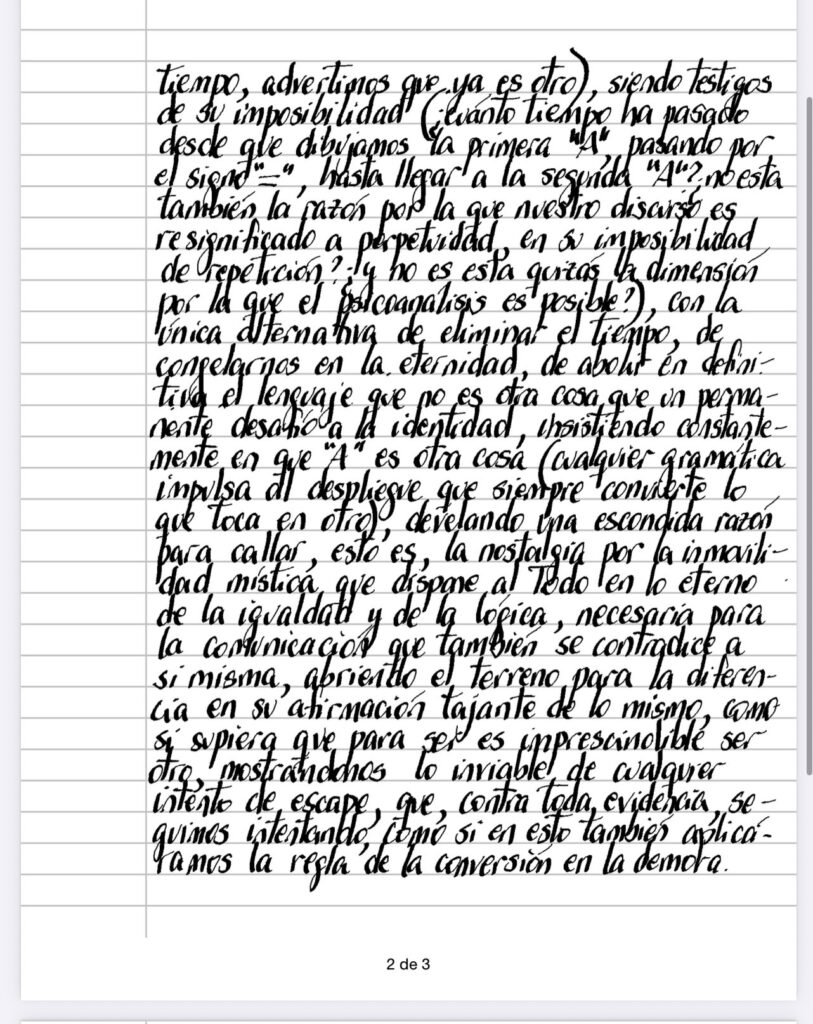 tiempo, advertimos que ya es otro), siendo testigos
de su imposibilidad (¿cuánto tiempo ha pasado
desde que dibujamos la primera "A", pasando por
el signo "=", hasta llegar a la segunda "A"? ¿no esta
también la razón por la que nuestro discurso es
resignificado a perpetuidad, en su imposibilidad
de repetición? ¿y no es esta quizás la dimensión
por la que el psicoanálisis es posible?), con la
única alternativa de eliminar el tiempo, de
congelarnos en la eternidad, de abolir en defini-
tiva el lenguaje que no es otra cosa que un perma-
nente desafío a la identidad, insistiendo constante-
mente en que "A" es otra cosa (cualquier gramática
impulsa al despliegue que siempre convierte lo
que toca en otro), develando una escondida razón
para callar, esto es, la nostalgia por la inmovili-
dad mística que dispone al Todo en lo eterno
de la igualdad y de la lógica, necesaria para
la comunicación que también se contradice a
si misma, abriendo el terreno para la diferen-
cia en su afirmación tajante de lo mismo, como
si supiera que para ser es imprescindible ser
otro, mostrándonos lo inviable de cualquier
intento de escape, que, contra toda evidencia, se-
guimos intentando, como si en esto también aplicá-
ramos la regla de la conversión en la demora.
2 de 3